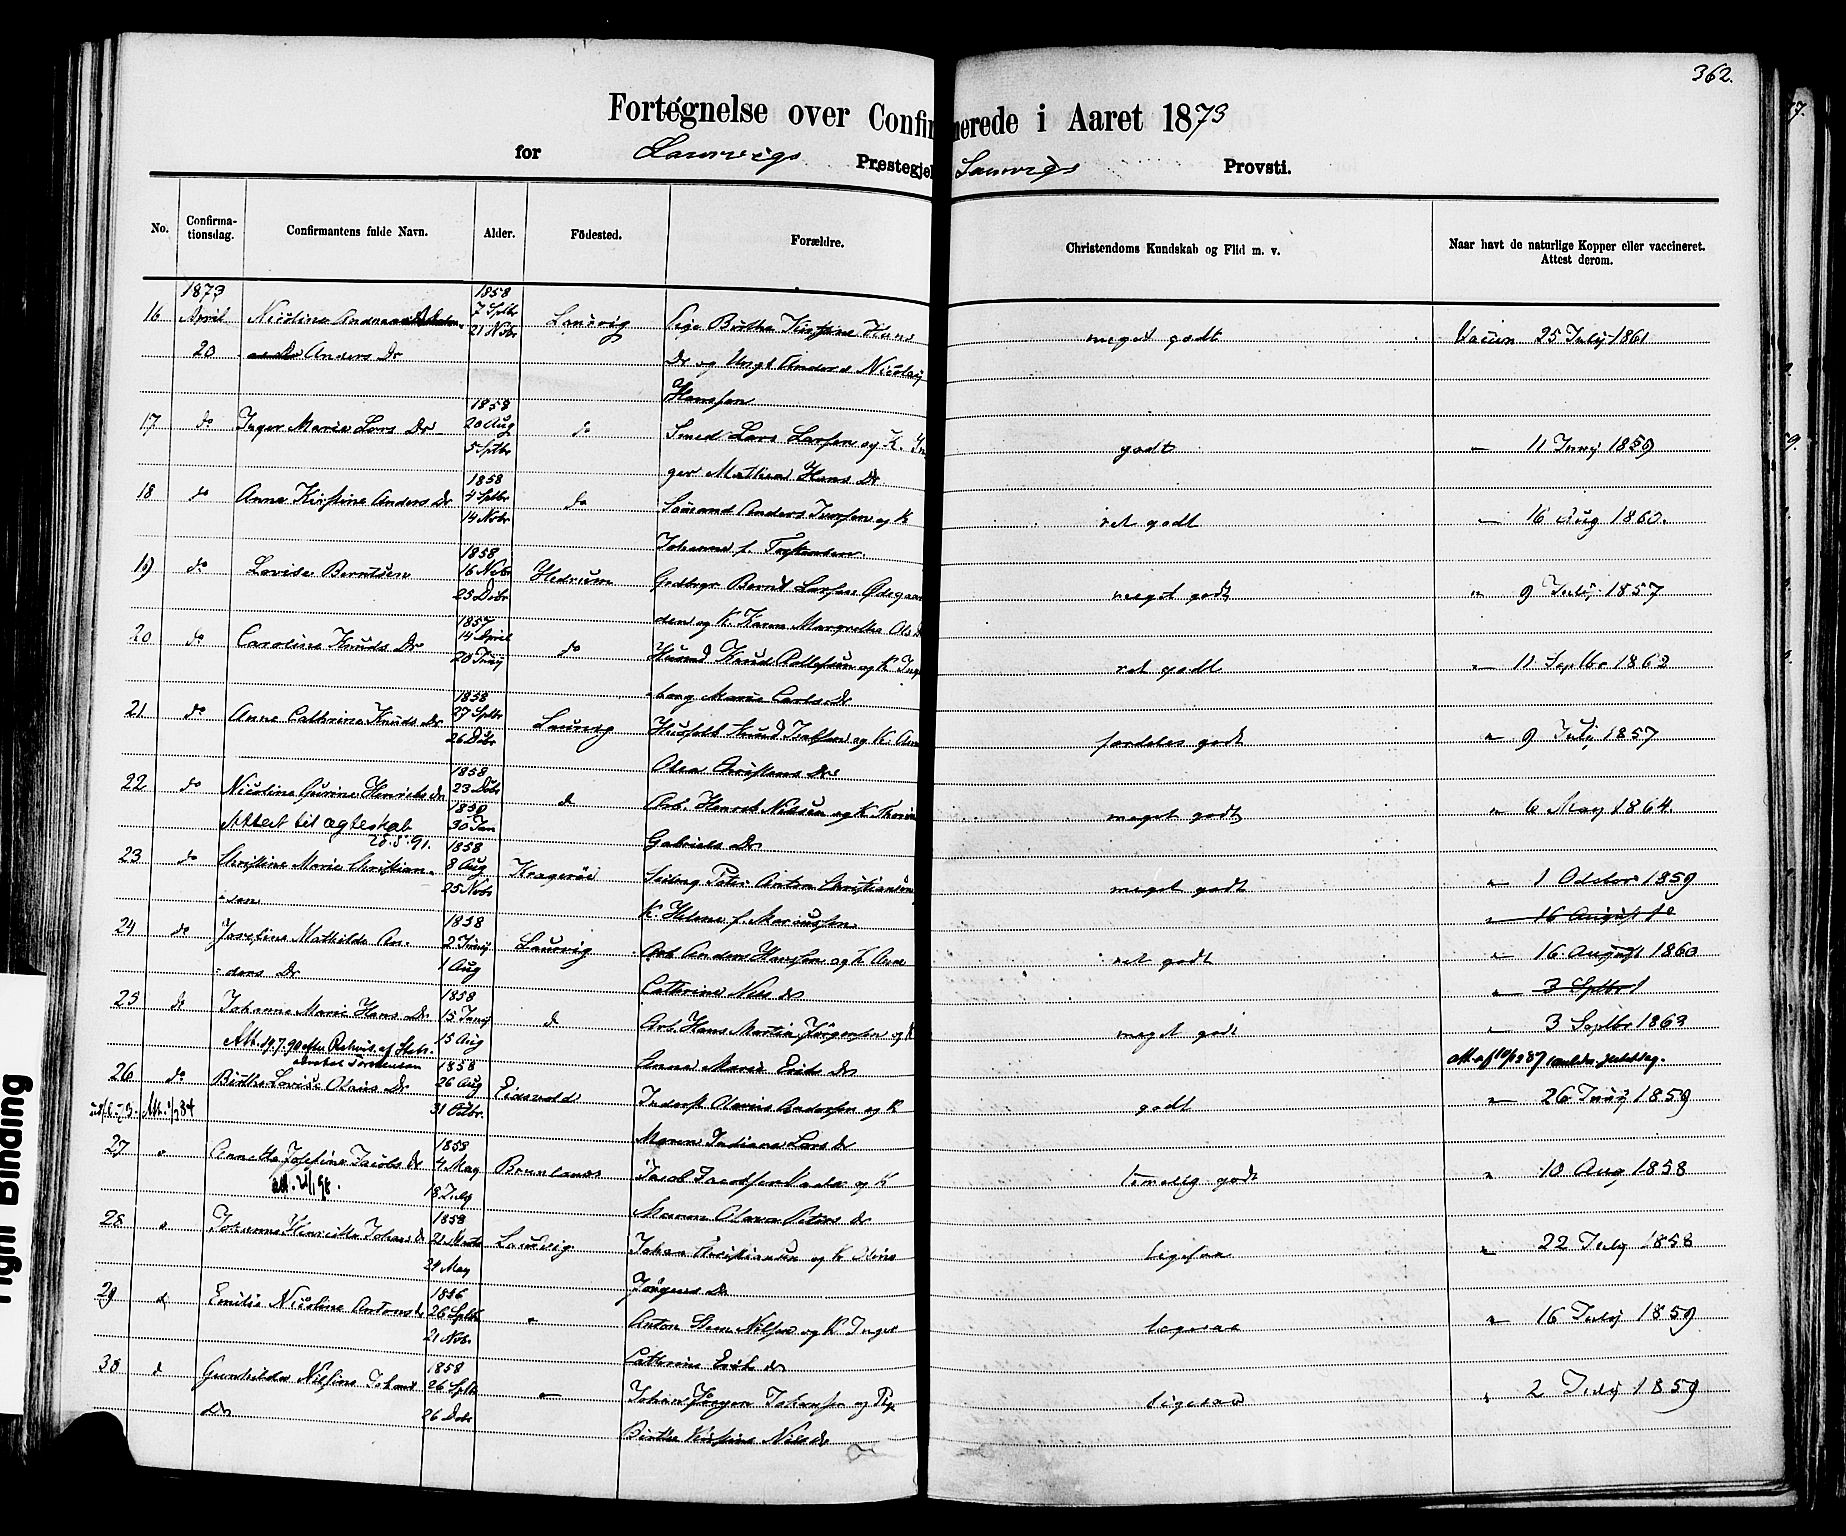 362.
Fortegnelse over Confirmerede i Aaret 1873
for Laurvigs Prestegjeld Laurvigs Provsti.
No. Confirmationsdag. Confirmantens fulde Navn. Alder. Födested. Forældre. Christendoms Kundskab og Flid m. v. Naar havt de naturlige Kopper eller vaccineret. Attest derom.
1873 1858
16 April Nicoline Andrea 7 Sptbr Laurvig Pige Birthe Kirstine Hans meget godt Vaccin 25 July 1861
20 Anders Dr 21 Nobr Dr og Ungk Anders Nicolay
Hanssen
1858
17 do Inger Marie Lars Dr 20 Aug do Smed Lars Larsen og K. In godt " 11 Juny 1859
5 Sptbr ger Mathea Hans Dr
1858
18 do Anne Kirstine Anders Dr 4 Sptbr do Sömand Anders Iversen og K ret godt " 16 Aug 1860.
14 Nobr Johanne f.
1858
19 do Lovise Berntsen 16 Nobr Hedrum Berndt Larsen Ödegaar meget godt " 9 July 1857
25 Dobr den og K. Karen Margrethe Ols Dr
1857
20 do Caroline Knuds Dr 14 April do Husmd Knud og K Inge ret godt " 11 Septbr 1862
20 Juny borg Marie Carls Dr
1858
21 do Anne Cathrine Knuds Dr 27 Sptbr Laurvig Knud og K. Anne særdeles godt " 9 July 1857
26 Dobr Olea Christens Dr
1858
22 do Nicoline Gurine Henriks dr 23 Dobr d Arb. Henrik Nilsen og K meget godt " 6 May 1864.
Attest til ægteskab 30 Jan Gabriels Dr
91. 1858
23 do Christine Marie Christian- 8 Aug Kragerö Peter Anton Christiansen meget godt " 1 Octobr 1859
sen 25 Nobr K. Helene f. Mariussen " 16 August
1858
24 do Josefine Mathilde An- 2 Juny Laurvig Arb Anders Hanssen og K Anne ret godt " 16 August 1860
ders Dr 1 Aug Cathrine Niels dr " 3 Sptbr
1858
25 do Johanne Marie Hans Dr 15 Juny d Arb. Hans Martin Jörgensen og K meget godt " 3 Septbr 1863
Att. 19.7.90 15 Aug Anne Marie Erik dr
1858
26 do Birthe Lovise Olaus Dr 26 Aug Eidsvold Inderst Olavus Andersen og K godt " 26 Juny 1859
31 Octbr. Maren Indiana Lars dr
1858
27 " Annette Josefine Jacobs dr 4 May Brunlanæs Jacob og K temelig godt " 10 Aug 1858
18 July Maren Olava Peters dr
1858
28 " Johanne Henriette Johans dr 21 Marts Laurvig Johan Christiansen og K ligesaa " 22 July 1858
24 May Jörgens Dr
1856
29 d Emilie Nicoline Antons dr 26 Sptb " Anton Nilsen og K Inger ligesaa " 16 July 1859
21 Nobr Cathrine Erik dr
1858
30 d Gunhilde Nilsine Johans 26 Sptb " Johan Jörgen Johansen og ligesaa " 2 July 1859
Dr 26 Dobr Birthe Kirstine Niels dr
Tight Binding